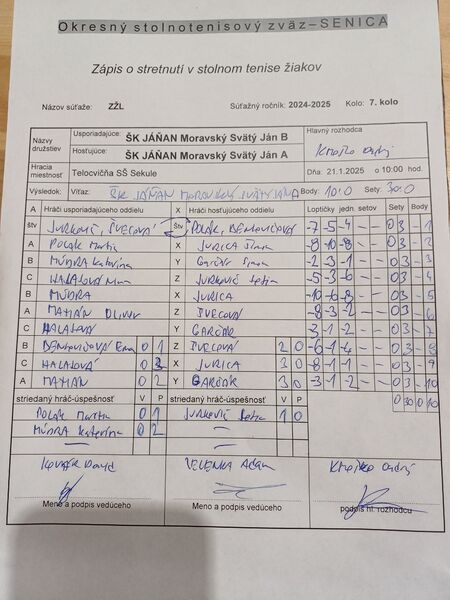 Okresný stolnotenisový zväz–SENICA
Zápis o stretnutí v stolnom tenise žiakov
Názov súťaže: ZŽL Súťažný ročník: 2024-2025 Kolo: 7. kolo
Názvy družstiev Usporiadajúce: ŠK JÁŇAN Moravský Svätý Ján B Hlavný rozhodca
Hosťujúce: ŠK JÁŇAN Moravský Svätý Ján A
Hracia miestnosť Telocvičňa SŠ Sekule Dňa: 21.1.2025 o 10:00 hod.
Výsledok: Víťaz: ŠK JÁŇAN MORAVSKÝ SVÄTÝ JÁN A Body: 10:0 Sety: 30:0
A Hráči usporiadajúceho oddielu X Hráči hosťujúceho oddielu Loptičky jedn. setov Sety Body
štv JURKOVIČ, ŠVECOVÁ Štv POLÁK, -7 -5 -4 - - 03 -1
A POLÁK Martin X JURICA -8 -10 -8 - - 03 -2
B MÚDRA Katarína Y GARČÁR Simon -2 -3 -1 - - 03 -3
C Z JURKOVIČ -5 -3 -6 - - 03 -4
B MÚDRA X JURICA -10 -6 -8 - - 03 -5
A Z ŠVECOVÁ -8 -3 -2 - - 03 -6
C HALABOVÁ Y GARČÁR -3 -1 -2 - - 03 -7
B 0 1 Z ŠVECOVÁ 2 0 -6 -1 -4 - - 03 -8
C X JURICA 3 0 -8 -1 -1 - - 03 -9
A 0 2 Y GARČÁR 3 0 -3 -1 -2 - - 03 -10
striedaný hráč-úspešnosť V P striedaný hráč-úspešnosť V P 0 30 0 10
POLÁK Martin 0 1 JURKOVIČ 1 0
MÚDRA Katarína 0 2
David ZELENKA Adam
Meno a podpis vedúceho Meno a podpis vedúceho podpis hl. rozhodcu